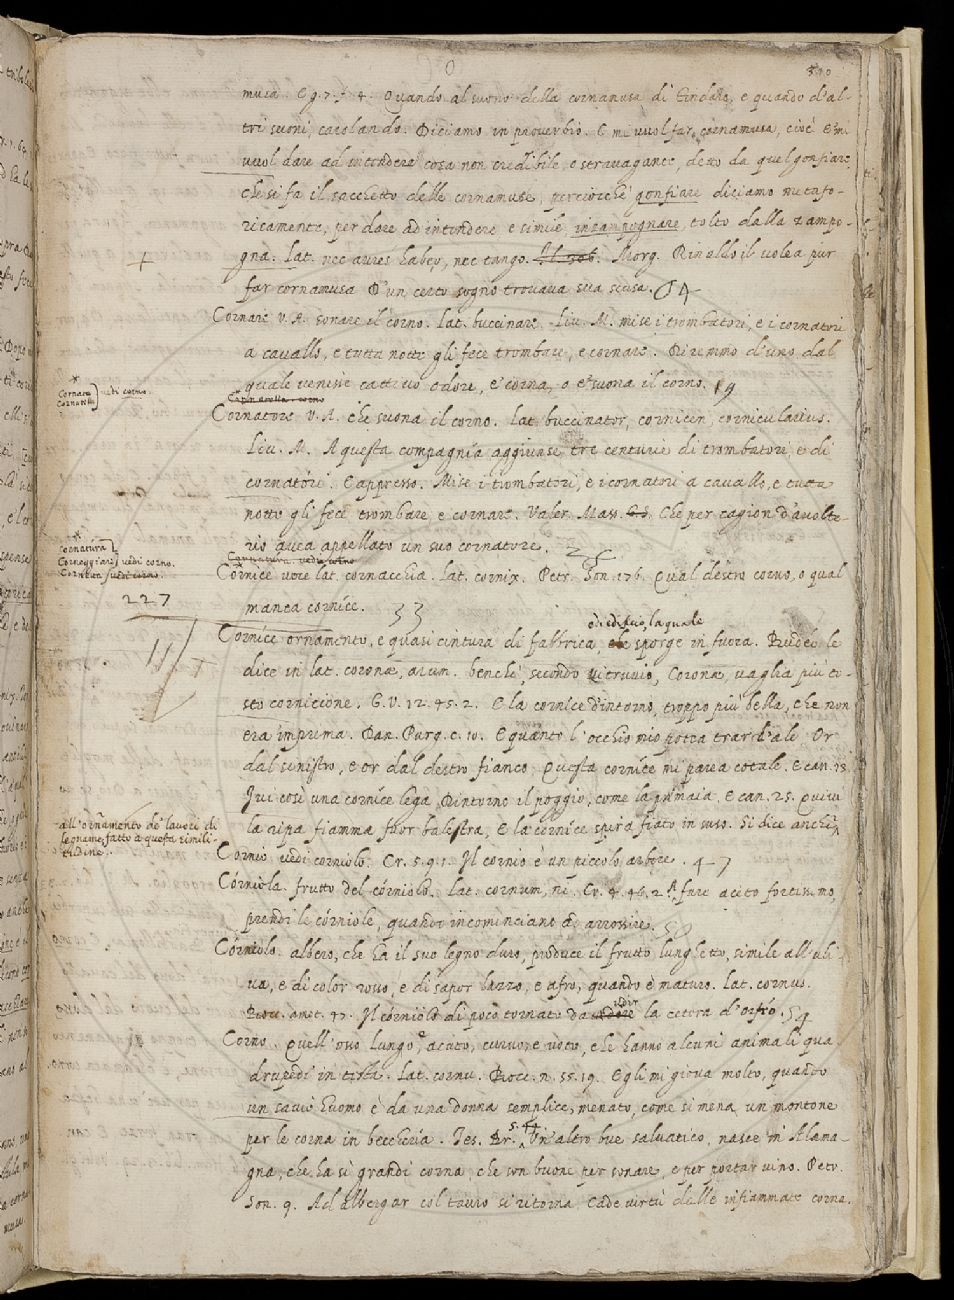 O
510
musa. E g. 7. f. 4. Quando al suono della cornamusa di Tindaro, e quando d'al-
tri suoni, carolando. Diciamo in proverbio. E mi vuol far cornamusa, cioè E' mi
vuol dare ad intendere cosa non credibile, e stravagante, detto da quel gonfiare
che si fa il sacchetto delle cornamuse, perciochè gonfiare diciamo metafo-
ricamente, per dare ad intendere e simile, inzampognare, tolto dalla zampo-
gna. Lat. nec aures habeo, nec tango. Morg. Rinaldo il volea pur
far cornamusa D'un certo sogno trovava sua scusa. 04
Cornare V. A. sonare il corno. Lat. buccinare. Liv. M. mise i trombatori, e i cornatori
a cavallo, e tutta notte gli fece trombare, e cornare. Diremmo d'uno dal
quale venisse cattivo odore, e' corna, o e' suona il corno. 19
Cornata
Cornatella } vedi corno.
Cornatore V. A. che suona il corno. Lat. buccinator, cornicen, cornicularius.
Liv. M. A questa compagnia aggiunse tre centurie di trombatori e di
cornatóri. E appresso. Mise i trombatori, e i cornatori a cavallo, e tutta
notte gli fece trombare e cornare. Valer. Mass. Che per cagion d'avolte-
rio avea appellato un suo cornatore. 26
Cornatura
Corneggiare } vedi corno.
Cornetto } vedi corno.
Cornatura. vedi corno
Cornice voce lat. cornacchia. Lat. cornix. Petr. Son. 176. Qual destro corvo, o qual
manca cornice. 33
227
di edificio, la quale
Cornice ornamento, e quasi cintura di fabbrica, che sporge in fuora. Budeo le
dice in lat. coronæ, arum. benchè, secondo Vitruvio, Corona, vaglia più to-
sto cornicione. G. V. 12. 45. 2. E la cornice d'intorno, troppo più bella, che non
era imprima. Dan. Purg. c. 10. E quanto l'occhio mio potea trar d'ale Or
dal sinistro, e or dal destro fianco Questa cornice mi parea cotale. E can. 13.
Ivi così una cornice lega Dintorno il poggio, come la primaia. E can. 25. Quivi
la ripa fiamma fuor balestra, E la cornice spira fiato in suso. Si dice anche
all'ornamento de' lavori di
legname, fatto a questa simili-
tudine.
Cornio vedi corniolo. Cr. 5. 9. 1. Il cornio è un piccolo arbore. 47
Córniola. frutto del córniolo. Lat. cornum, ni. Cr. 4. 46. 2. A fare aceto fortissimo,
prendi le córniole, quando incominciano ad arrossire. 50
Córniolo. albero, che ha il suo legno duro, produce il frutto lunghetto, simile all'uli-
va, e di color rosso, e di sapor lazzo, e afro, quando è maturo. Lat. cornus.
udir
Bocc. amet. 47. Il córniolo di poco tornato da la cetera d'orfeo. 54
Corno. Quell'osso lungo, e acuto, curvo, e voto, che hanno alcuni animali qua-
drupedi in testa. Lat. cornu. Bocc. n. 55. 19. Egli mi giova molto, quando
un savio huomo è da una donna semplice, menato, come si mena un montone
per le corna in beccheria. Tes. Br. 5. 44. Un'altro bue salvatico, nasce in Alama-
gna, che ha sì grandi corna, che son buone per sonare, e per portar vino. Petr.
Son. 9. Ad albergar col tauro si ritorna, Cade virtù delle infiammate corna.